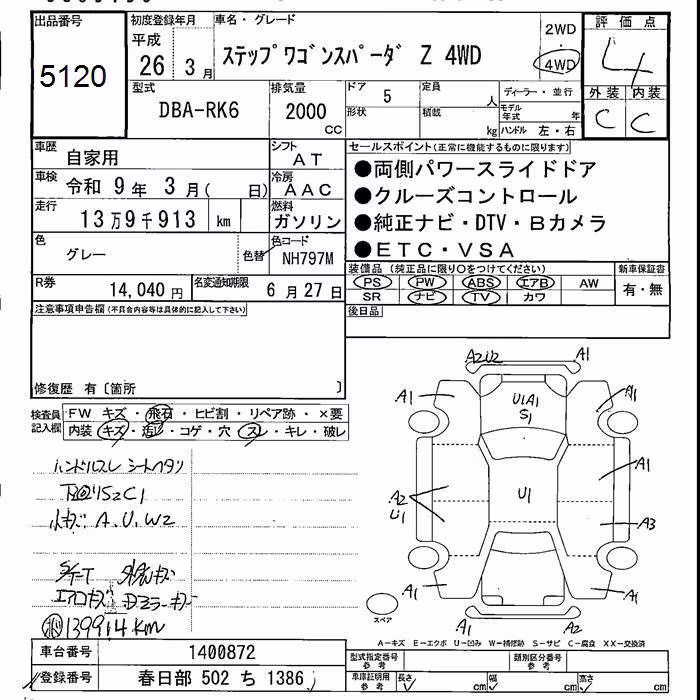 出品番号
5120
初度登録年月
平成
26 3月
車名・グレード
ステップワゴンスパーダ Z 4WD
2WD
4WD
評価点
4
外装 内装
C C
型式
DBA-RK6
排気量
2000
CC
ドア
5
形状
定員
人
積載
kg
ディーラー・並行
モデル年式 年
ハンドル 左・右
車歴 自家用
シフト AT
車検 令和 9年 3月( 日)
冷房 AAC
走行 13万9千913 km
燃料 ガソリン
色 グレー
色替
色コード NH797M
R券 14,040円
名変通知期限 6月27日
セールスポイント(正常に機能するものに限ります)
●両側パワースライドドア
●クルーズコントロール
●純正ナビ・DTV・Bカメラ
●ETC・VSA
装備品 (純正品に限り○をつけてください)
新車保証書
PS PW ABS エアB AW
有・無
SR ナビ TV カワ
後日品
注意事項申告欄(不具合内容等は具体的に記入して下さい)
修復歴 有〔箇所 〕
検査員記入欄
FW キズ・飛石・ヒビ割・リペア跡・×要
内装 キズ・汚レ・コゲ・穴・スレ・キレ・破レ
ハンドルスレ シートヘタリ
A.U.W2
139914km
A2U2 A1
A1 A1
U1A1
S1
A1
U1
A2
U1
A3
A1 A1
A1 A2
スペア
A-キズ E-エクボ U-凹み W-補修跡 S-サビ C-腐食 XX-交換済
車台番号 1400872
登録番号 春日部 502 ち 1386
型式指定番号 参考
類別区分番号 参考
車庫証明用 参考
長さ cm 幅 cm 高さ cm